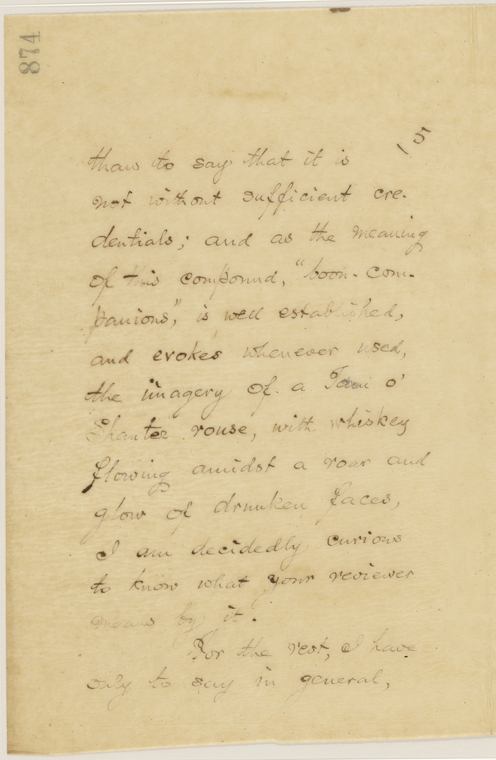 874
15
than to say that it is
not without sufficient cre-
dentials; and as the meaning
of this compound, "boon-com-
panions," is well established,
and evokes whenever used,
the imagery of a Tam o'
Shanter rouse, with whiskey
flowing amidst a roar and
glow of drunken faces,
I am decidedly curious
to know what your reviewer
means by it.
For the rest, I have
only to say in general,